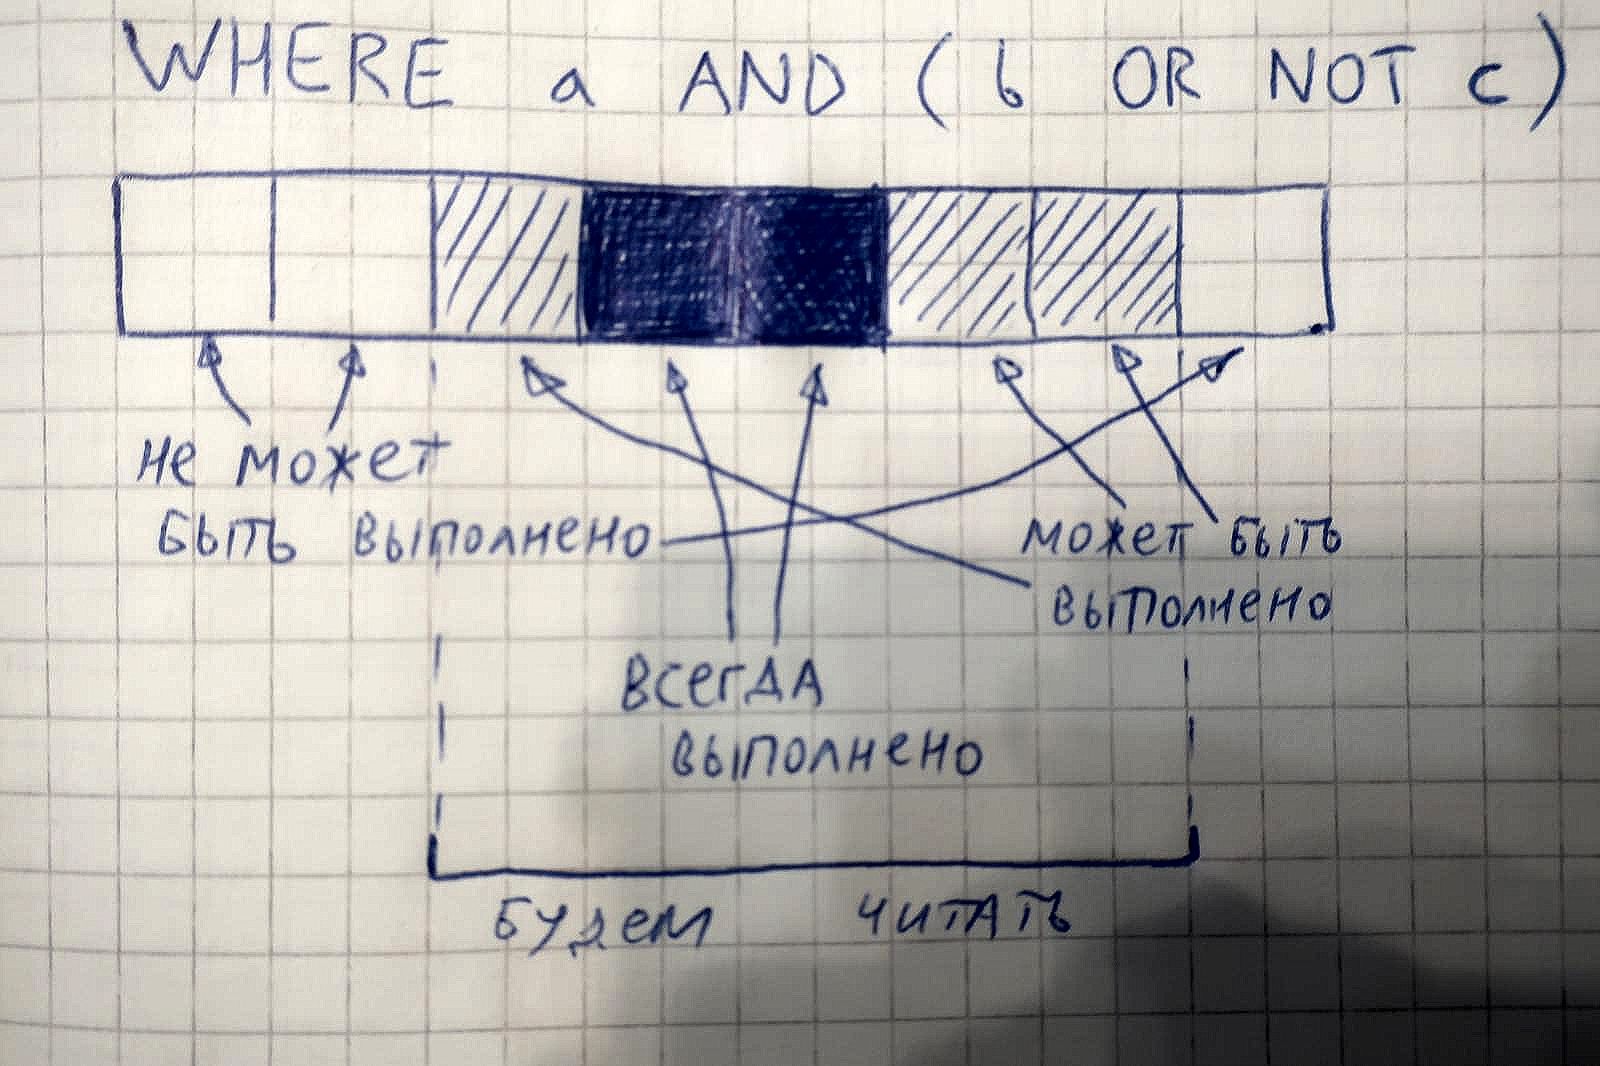 WHERE a AND (b OR NOT c)
не может
быть выполнено
может быть
выполнено
всегда
выполнено
будем читать